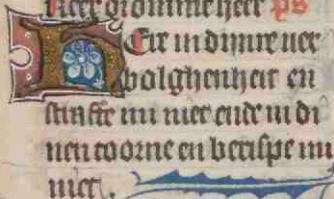 ps
Here in dinre ver
bolghenheit en
straffe mi niet ende in di
nen toorne en berispe mi
niet.